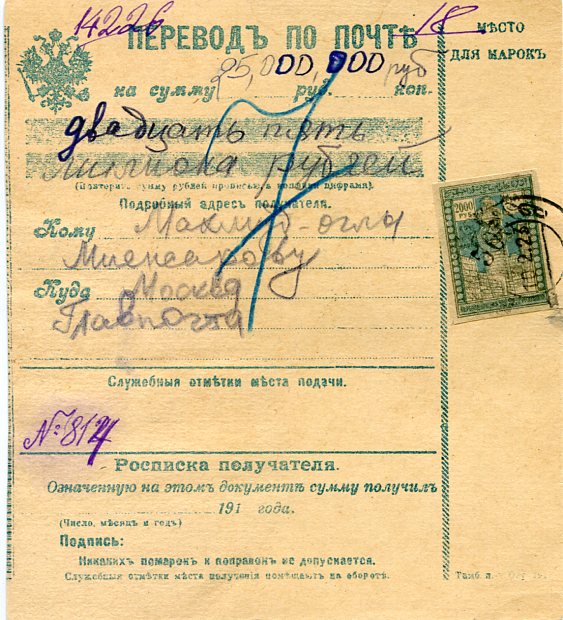 14226
18
ПЕРЕВОДЪ ПО ПОЧТѢ
МѢСТО
ДЛЯ МАРОКЪ
25,000,000 руб
на сумму руб. коп.
двадцать пять
миллиона рублей
(Повторить сумму рублей прописью, а копѣйки цифрами).
Подробный адресъ получателя.
Кому Махмуд-оглы
Куда Москва
Главпочта
2000
РУБ
Служебныя отмѣтки мѣста подачи.
№ 8124
Росписка получателя.
Означенную на этомъ документѣ сумму получилъ
191 года.
(Число, мѣсяцъ и годъ)
Подпись:
Никакихъ помарокъ и поправокъ не допускается.
Служебныя отмѣтки мѣста полученія помѣщать на оборотѣ.